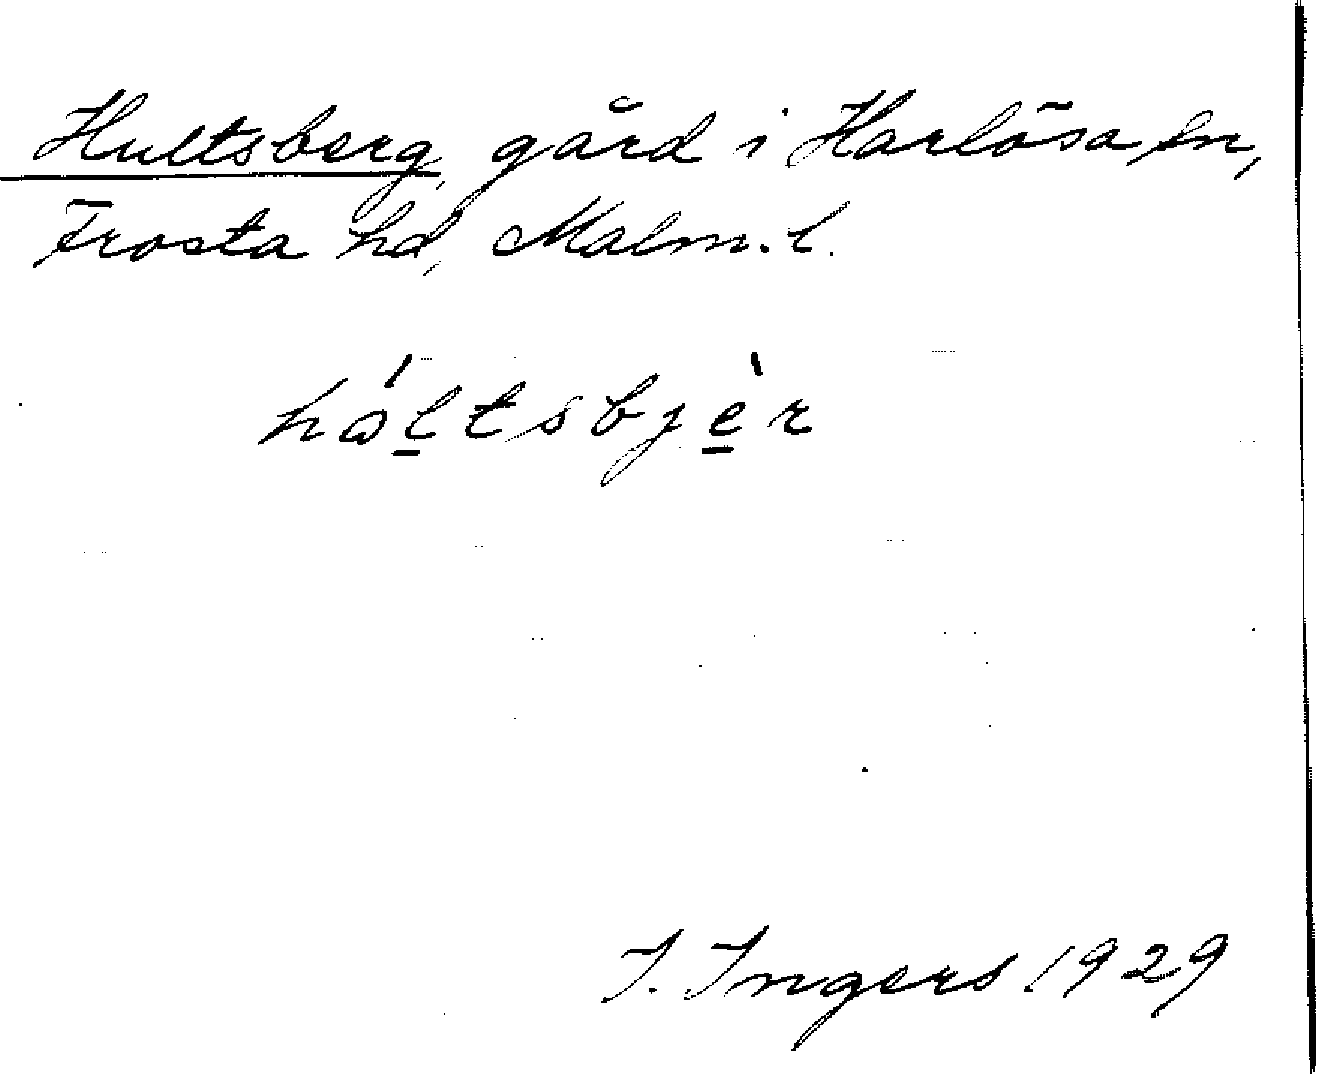 Hultsberg, gård i Harlösa sn,
Frosta hd, Malm. l.
hól̲tsbjè̲r
I. Ingers 1929